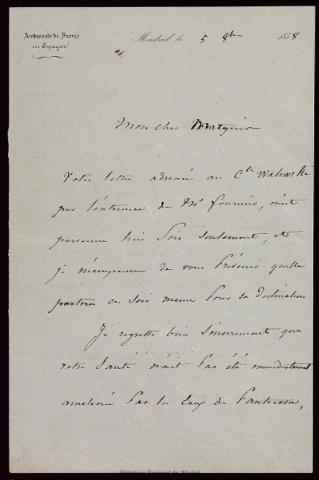 Ambassade de France
en Espagne
Madrid le 5 8bre 1858
Mon cher Marquis
Votre lettre adressée au Cte Walewski
par l'entremise de Mr fournier, m'est
parvenue hier soir seulement, et
je m'empresse de vous prévenir qu'elle
partira ce soir même pour sa destination
Je regrette bien sincèrement que
votre santé n'ait pas été
améliorée par les Eaux de Panticosa,
Biblioteca Nacional de Madrid